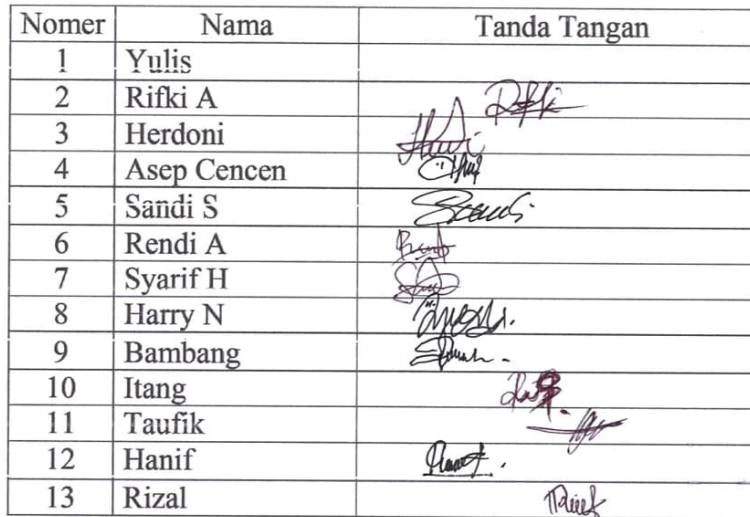 Nomer Nama Tanda Tangan
1 Yulis
2 Rifki A
3 Herdoni
4 Asep Cencen
5 Sandi S
6 Rendi A
7 Syarif H
8 Harry N
9 Bambang
10 Itang
11 Taufik
12 Hanif
13 Rizal